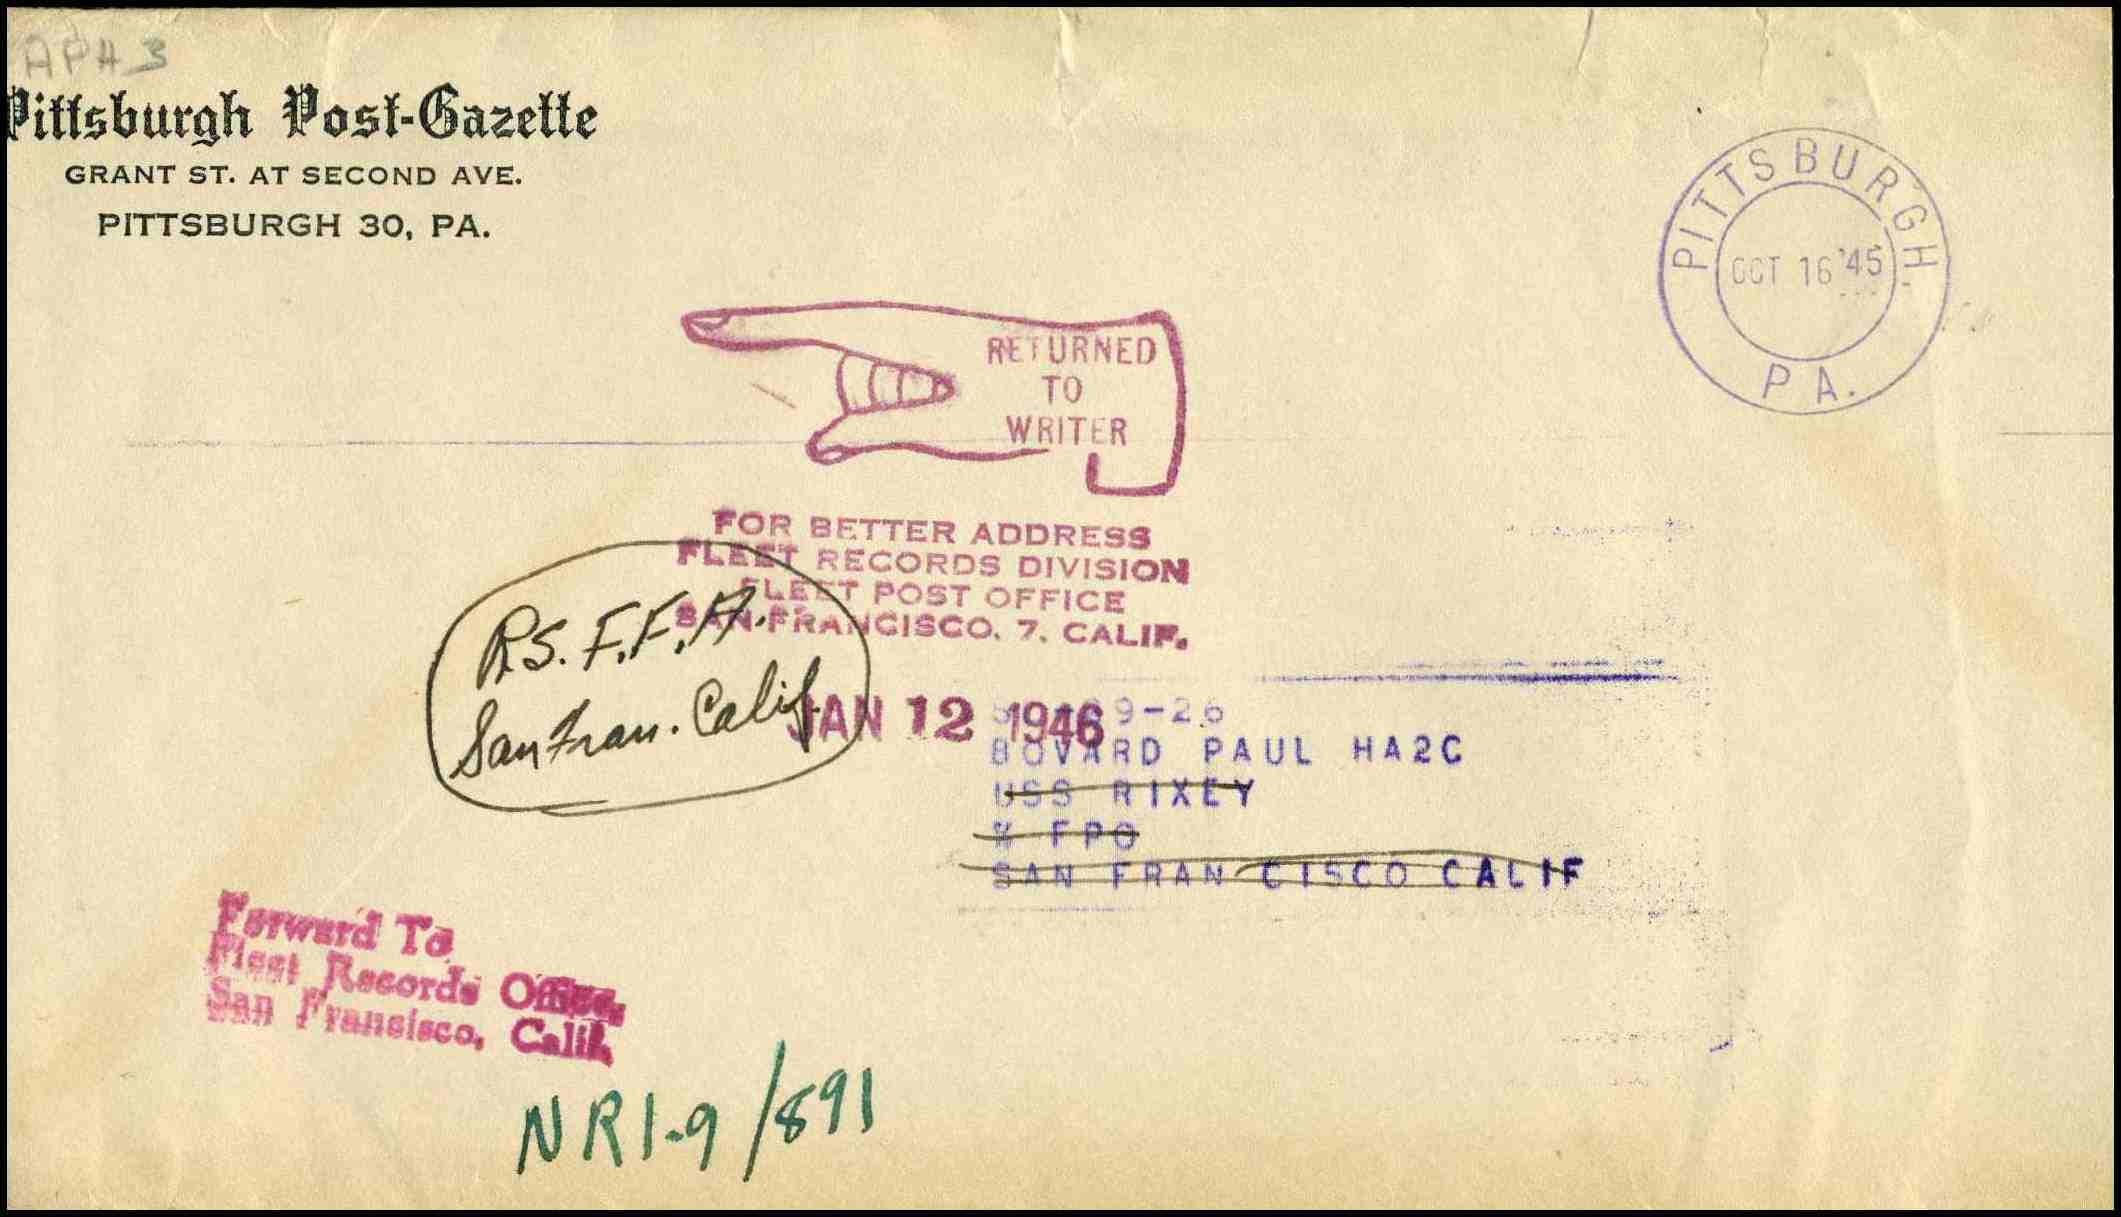 APH 3
Pittsburgh Post-Gazette
GRANT ST. AT SECOND AVE.
PITTSBURGH 30, PA.
PITTSBURGH
OCT 16 '45
PA.
RETURNED
TO
WRITER
FOR BETTER ADDRESS
FLEET RECORDS DIVISION
FLEET POST OFFICE
SAN FRANCISCO. 7. CALIF.
R.S. F.F.A.
San Fran. Calif.
JAN 12 1946
9-26
BOVARD PAUL HA2C
USS RIXEY
% FPO
SAN FRANCISCO CALIF
Forward To
Fleet Records Office,
San Francisco, Calif.
NR1-9/891